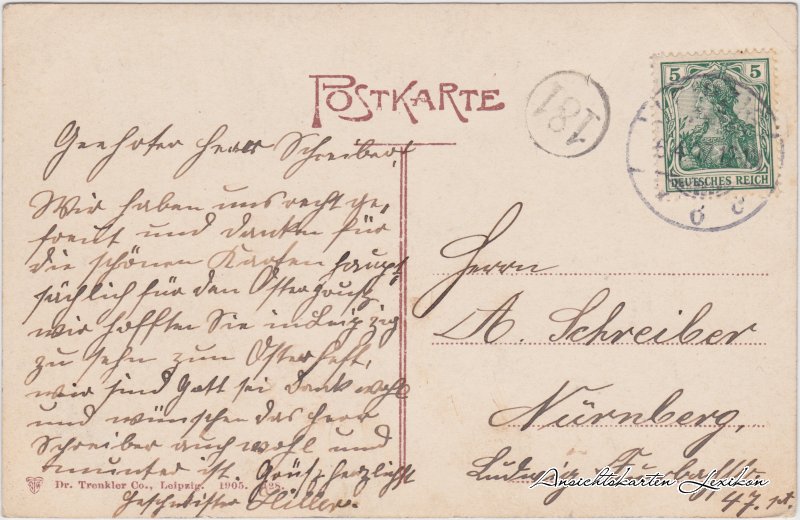 POSTKARTE
181
5 5
DEUTSCHES REICH
Geehrter Herr Schreiber!
Wir haben uns recht ge,
freut und danken für
die schönen Karten haupt
sächlich für den Ostergruß
wir hofften Sie in Leipzig
zu sehn zum Osterfest,
wir sind Gott sei Dank wohl
und wünschen das Herr
Schreiber auch wohl und
munter ist. Grüßt herzlichst
Geschwister Hiller.
Herrn
A. Schreiber
Nürnberg,
Ludwig
47. 
Dr. Trenkler Co., Leipzig. 1905.
Ansichtskarten-Lexikon